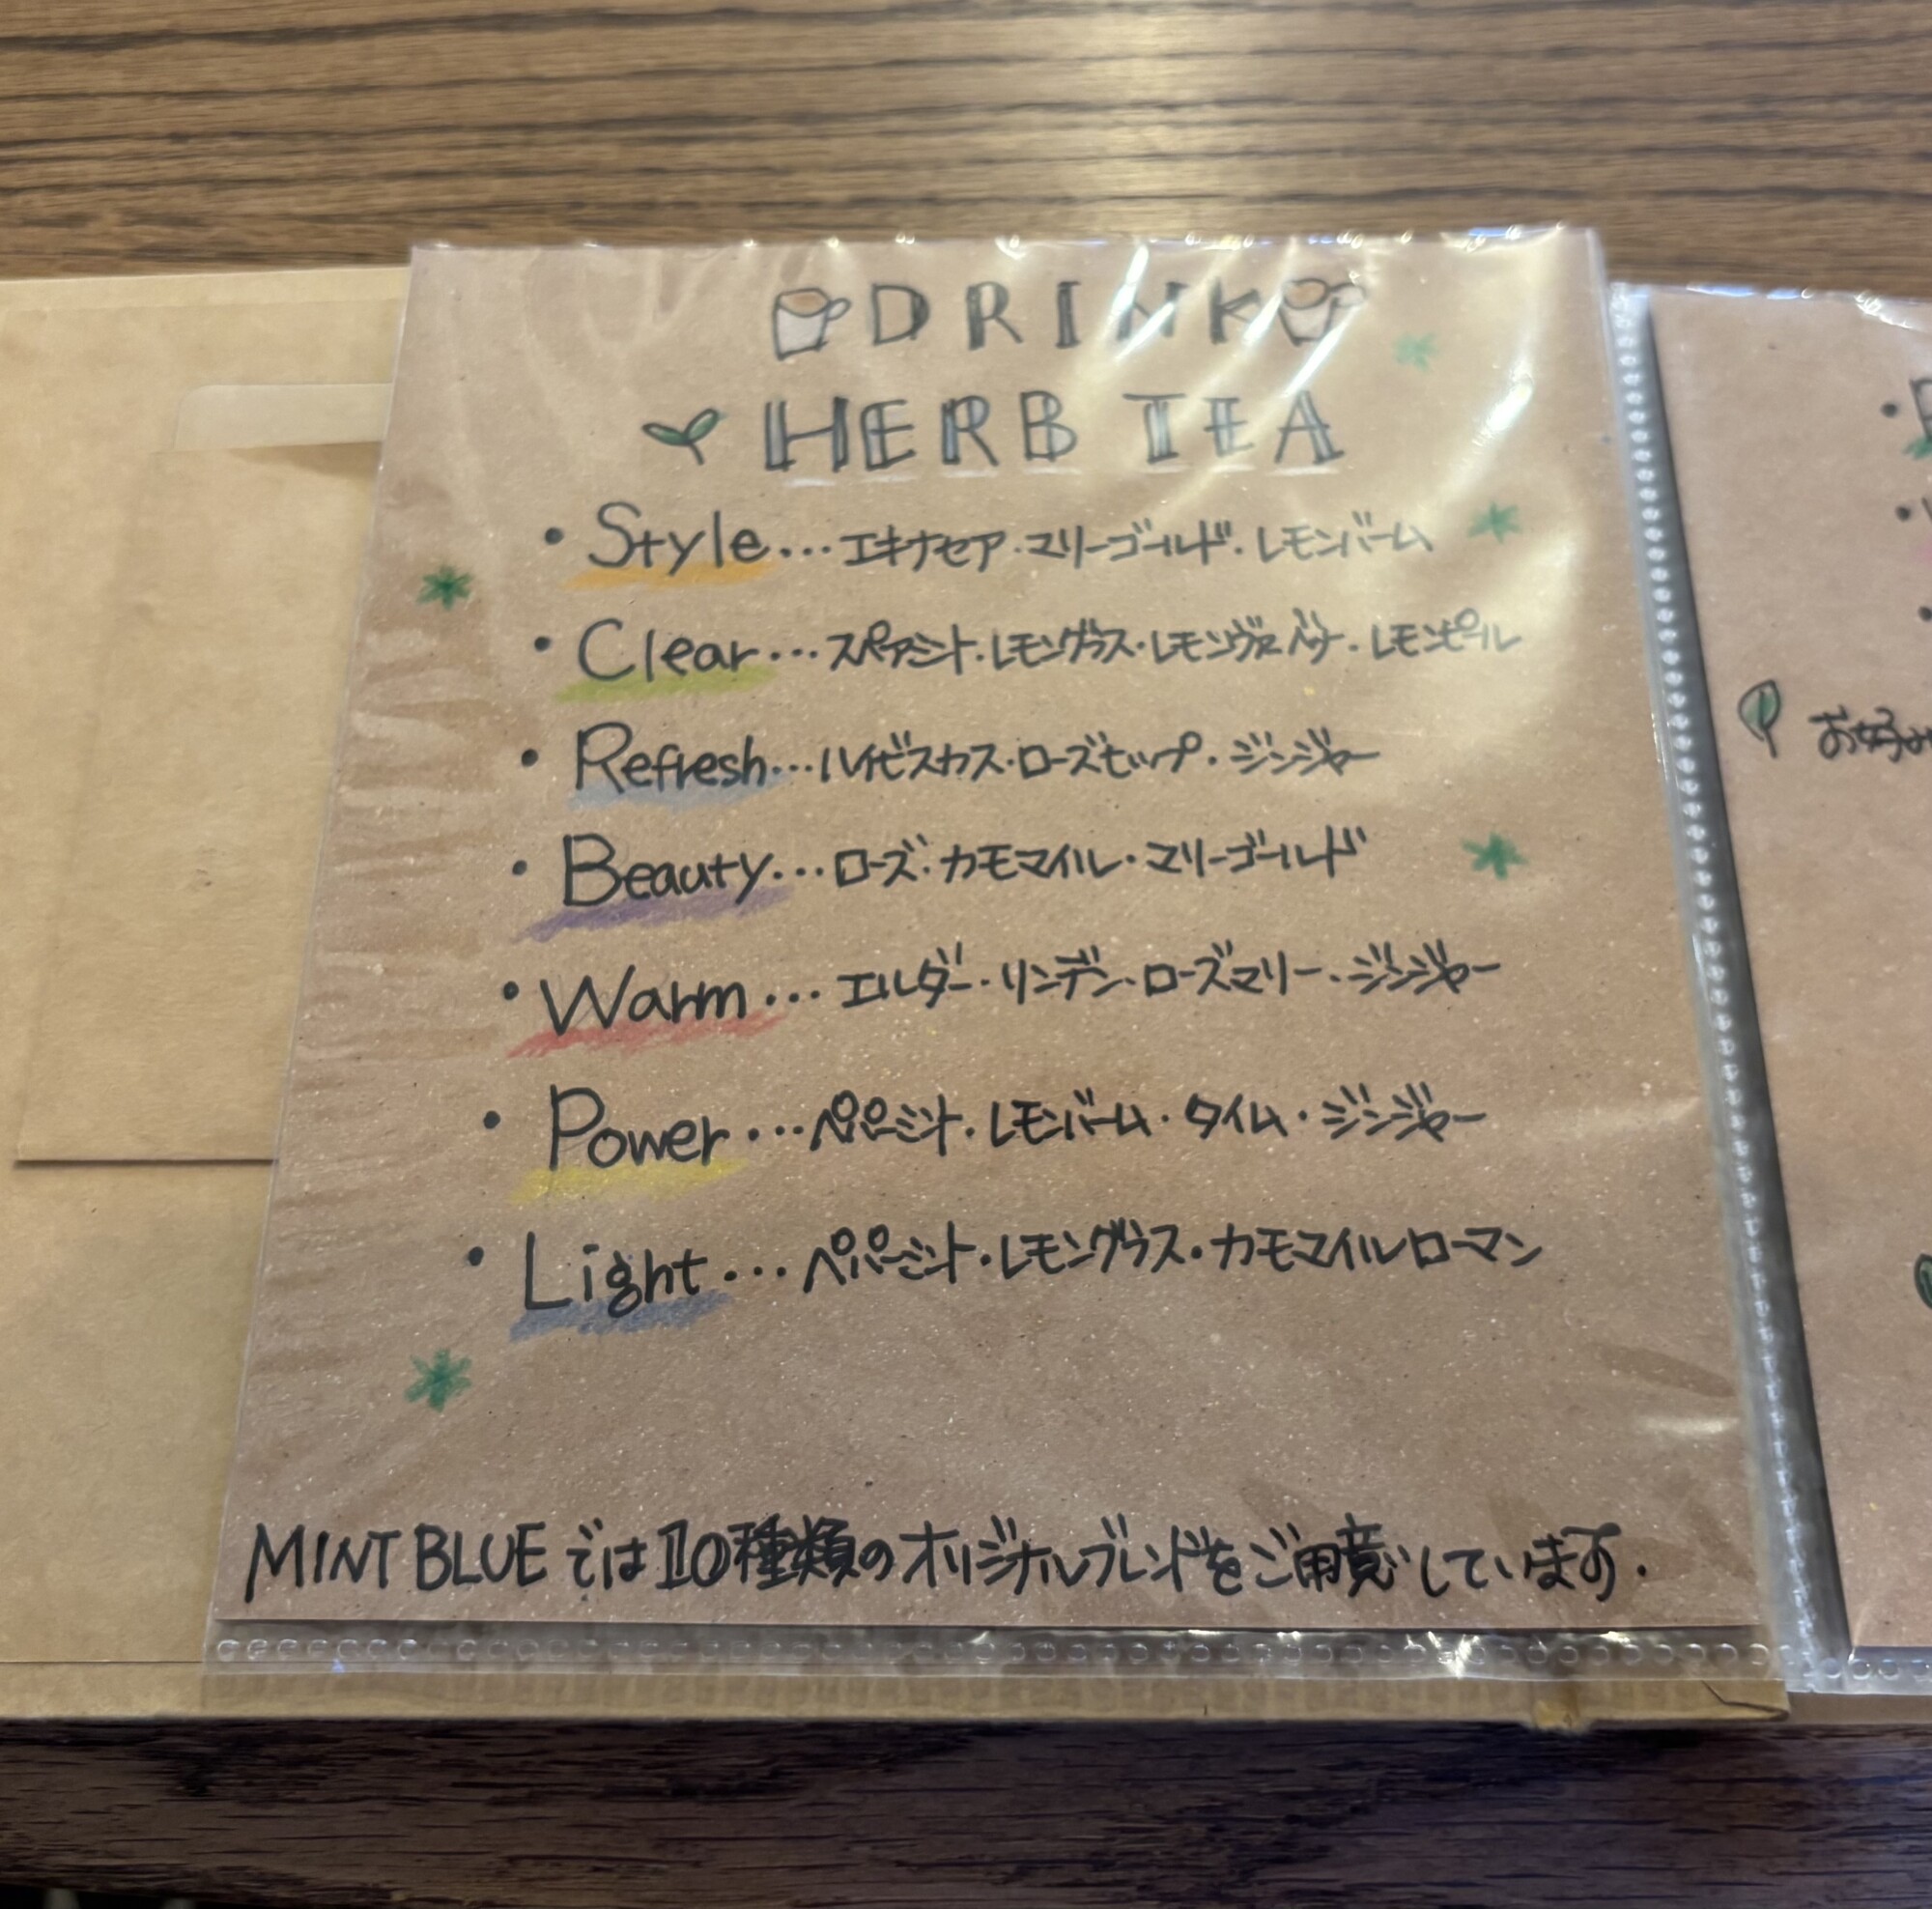 DRINK
HERB TEA
・Style...エキナセア・マリーゴールド・レモンバーム
・Clear...スペアミント・レモングラス・レモンヴァベナ・レモンピール
・Refresh...ハイビスカス・ローズヒップ・ジンジャー
・Beauty...ローズ・カモマイル・マリーゴールド
・Warm...エルダー・リンデン・ローズマリー・ジンジャー
・Power...ペパーミント・レモンバーム・タイム・ジンジャー
・Light...ペパーミント・レモングラス・カモマイルローマン
MINT BLUEでは10種類のオリジナルブレンドをご用意しています.
お好み